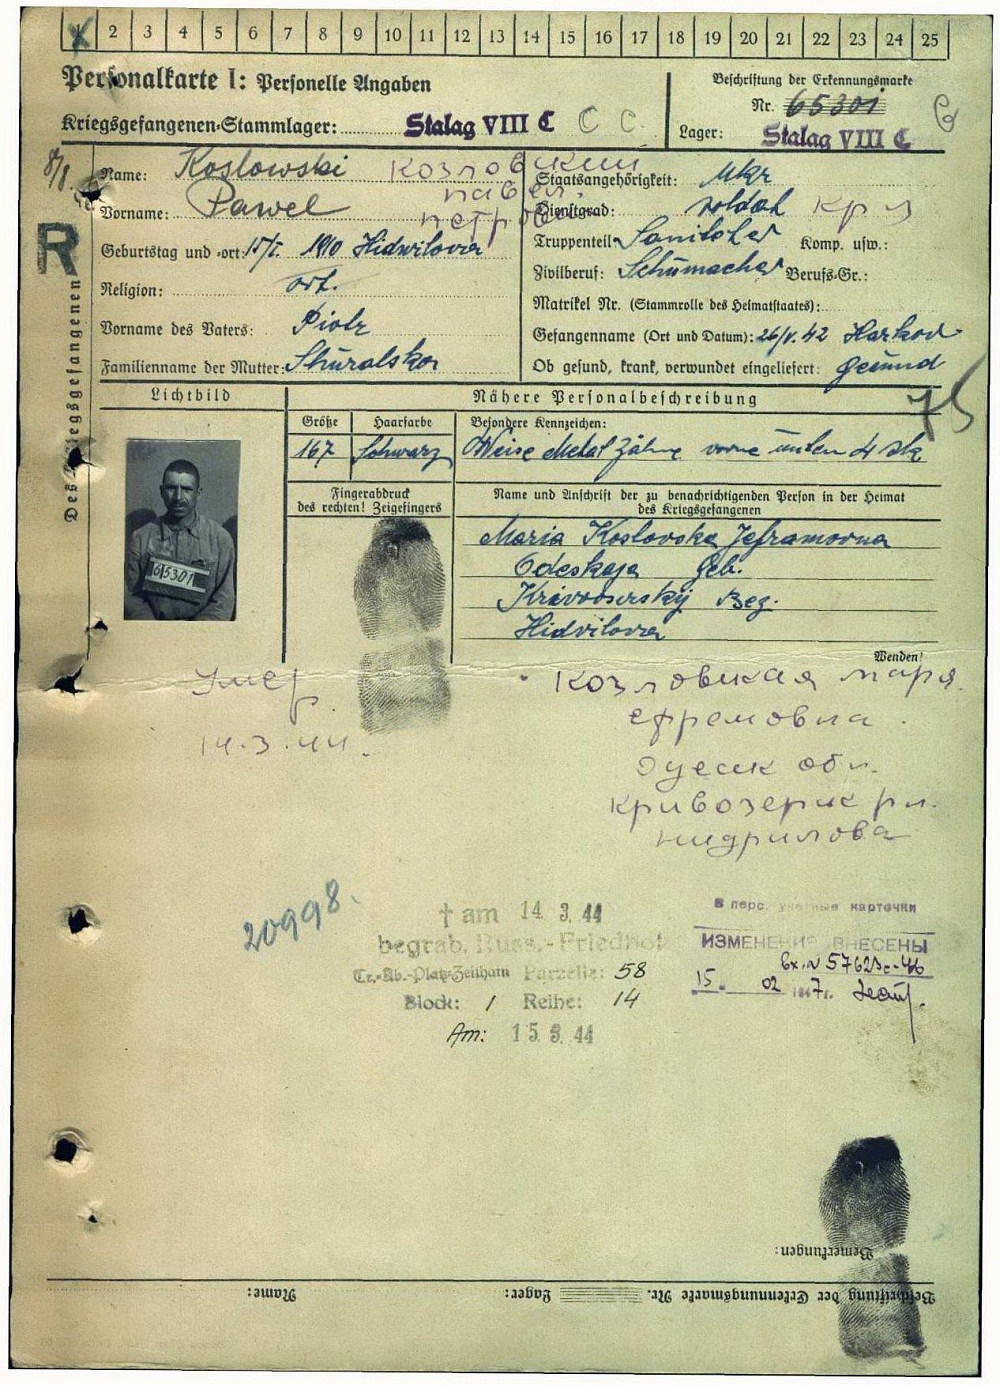 1 2 3 4 5 6 7 8 9 10 11 12 13 14 15 16 17 18 19 20 21 22 23 24 25
Personalkarte I: Personelle Angaben
Kriegsgefangenen-Stammlager: Stalag VIII C C C
Beschriftung der Erkennungsmarke
Nr. 65301
Lager: Stalag VIII C
8/8.
R
Des Kriegsgefangenen
Name: Koslowski Козловский
Vorname: Pawel павел
петров
Geburtstag und -ort: 15/I. 1910 Hidwilowa
Religion: ort.
Vorname des Vaters: Piotr
Familienname der Mutter: Shuralskor
Staatsangehörigkeit: Ukr
Dienstgrad: soldat кр из
Truppenteil: Sanitäter Komp. usw.:
Zivilberuf: Schümacher Berufs-Gr.:
Matrikel Nr. (Stammrolle des Heimatstaates):
Gefangenname (Ort und Datum): 26/V. 42 Harkov
Ob gesund, krank, verwundet eingeliefert: gesund
75
Lichtbild
65301
Nähere Personalbeschreibung
Größe Haarfarbe Besondere Kennzeichen:
167 Schwarz Weise Metal Zähne vorne unten 4 stk
Fingerabdruck
des rechten! Zeigefingers
Name und Anschrift der zu benachrichtigenden Person in der Heimat
des Kriegsgefangenen
Maria Koslovska Jeframovna
Odeskaja Geb.
Krivooserskij Bez.
Hidvilova
Wenden!
Умер
14.3.44.
Козловская маря
ефремовна
Одеск обл.
кривозерик рн.
нидрилова
20998.
† am 14. 3. 44
begrab. Russ.-Friedhof
Tr.-Üb.-Platz-Zeithain Parzelle: 58
Block: 1 Reihe: 14
Am: 15. 3. 44
В перс. учетные карточки
ИЗМЕНЕНИЯ ВНЕСЕНЫ
Вх. № 57623с-46
15. 02 1947г.
Bemerkungen:
Beschriftung der Erkennungsmarke Nr. Lager: Name: